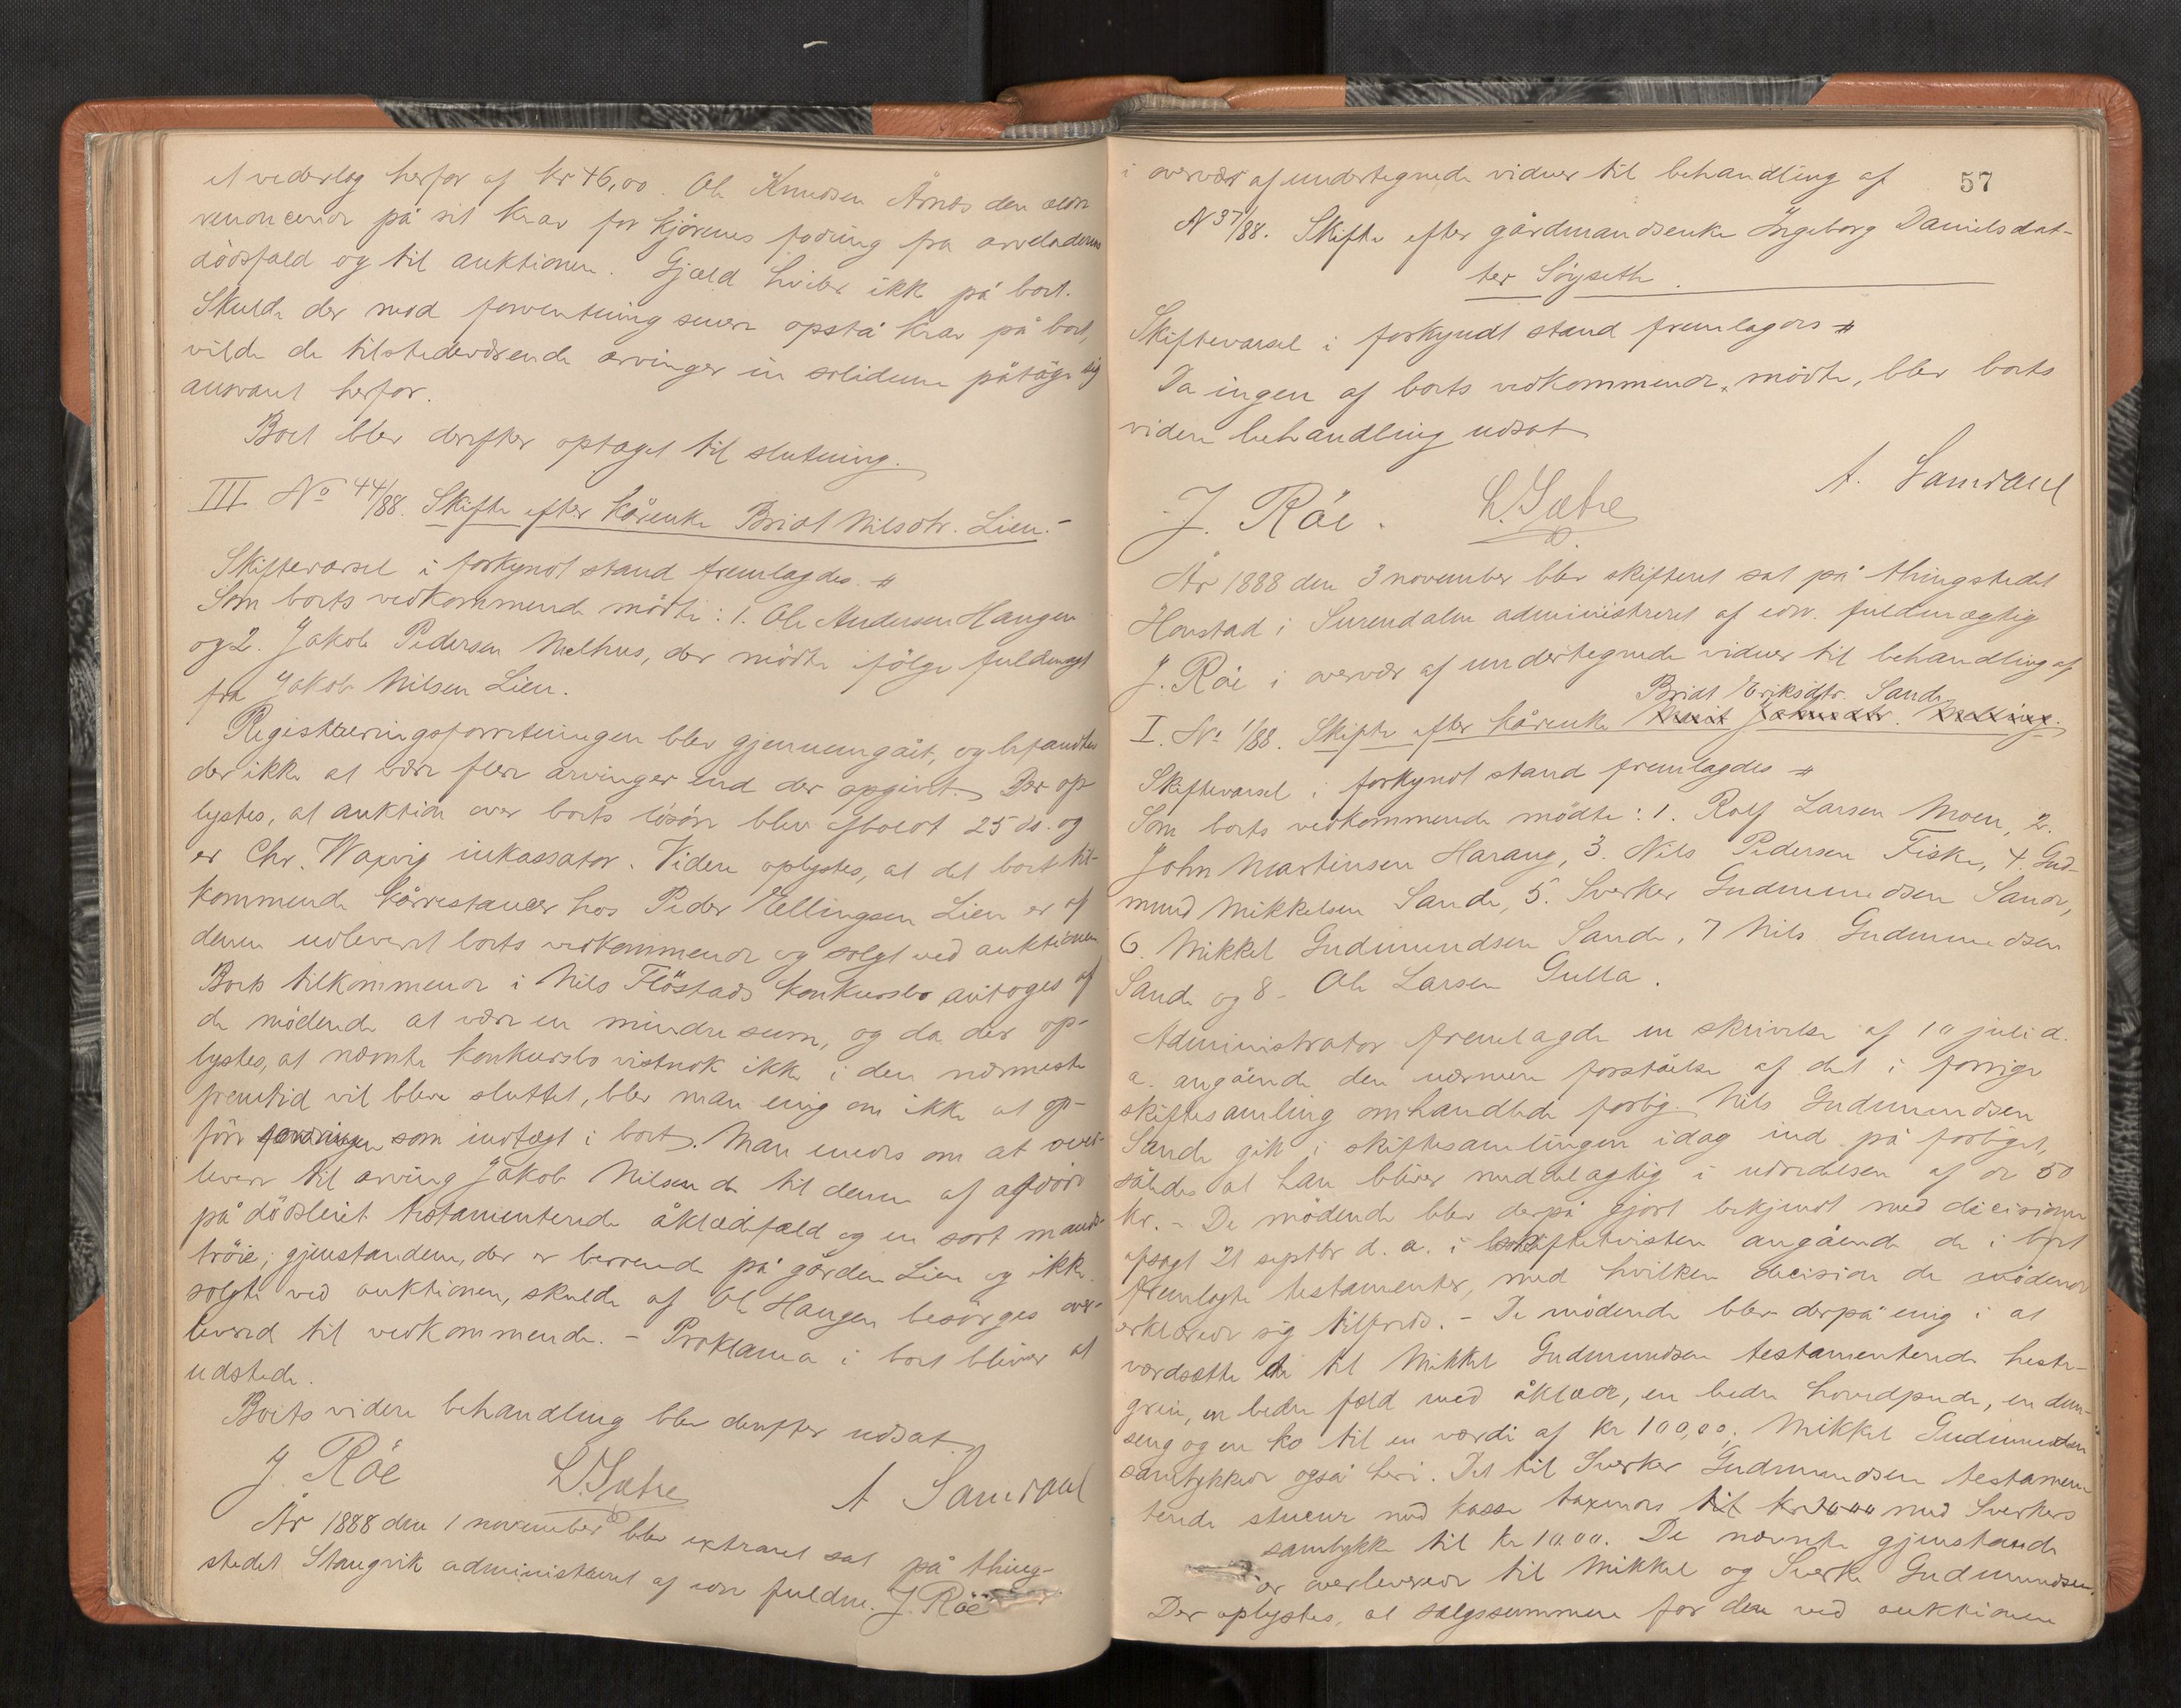 et vederlag herfor af kr 46,00. Ole Knudsen Årnes den ældre
renoncerer på sit krav for kjörenes fodring fra arveladerens
dödsfald og til auktionen. Gjæld hviler ikke på boet.
Skulde der mod forventning senere opstå krav på boet,
vilde de tilstedeværende arvinger in solidum påtage sig
ansvaret herfor.
Boet blev derefter optaget til slutning.
III No 44/88. Skifte efter kårenke Briat Nilsdtr. Lien.-
Skiftevarsel i forkyndt stand fremlagdes. #
Som boets vedkommende mödte: 1. Ole Andersen Haugen
og 2. Jakob Pedersen Melhus, der mödte ifölge fuldmagt
fra Jakob Nilsen Lien.
Registreringsforretningen blev gjennemgået, og befandtes
der ikke at være flere arvinger end der opgivet. Der op-
lystes, at auktion over boets lösöre blev afholdt 25 ds. og
er Chr. Wapvig inkassator. Videre oplystes, at det boet til-
kommende kårrestancer hos Peder Ellingsen Lien er af
denne udleveret boets vedkommende og solgt ved auktionen
Boets tilkommende i Nils Flöstads konkursbo antoges af
de mödende at være en mindre sum, og da der op-
lystes, at nævnte konkursbo vistnok ikke i den nærmeste
fremtid vil blive sluttet, blev man enig om ikke at op-
före fordringen som indtægt i boet. Man enedes om at over-
levere til arving Jakob Nilsen de til denne af afdöde
på dödsleiet testamenterede åklædefæld og en sort mands-
tröie; gjenstandene, der er beroende på gården Lien og ikke
solgte ved auktionen, skulde af Ole Haugen besörges over-
levered til vedkommende. - Proklama i boet bliver at
udstede.
Boets videre behandling blev derefter udsat.
J. Röe L. Sætre A Samdahl
År 1888 den 1 november blev extraret sat på thing-
stedet Stangvik administreret af edsv. fuldm. J. Röe
57
i overvær af undertegnede vidner til behandling af
N 37/88. Skifte efter gårdmandsenke Ingeborg Danielsdat-
ter Söyseth.
Skiftevarsel i forkyndt stand fremlagdes #
Da ingen af boets vedkommende mödte, blev boets
videre behandling udsat
J. Röe. L. Sætre A. Samdahl
År 1888 den 3 november blev skifteret sat på thingstedet
Honstad i Surendalen administreret af edsv. fuldmægtig
J. Röe i overvær af undertegnede vidner til behandling af
Briat Eriksdtr. Sande
I. No 1/88. Skifte efter kårenke Marit
Skiftevarsel i forkyndt stand fremlagdes #
Som boets vedkommende mödte: 1. Rolf Larsen Moen, 2.
John Martinsen Harang, 3. Nils Pedersen Fiske, 4. Gud-
mund Mikkelsen Sande, 5. Sverker Gudmundsen Sande,
6. Mikkel Gudmundsen Sande, 7 Nils Gudmundsen
Sande og 8- Ole Larsen Gulla.
Administrator fremlagde en skrivelse af 10 juli d.
a. angående den nærmere forståelse af det i forrige
skiftesamling omhandlede forlig. Nils Gudmundsen
Sande gik i skiftesamlingen idag ind på forliget,
således at han bliver meddelagtig i udredelsen af de 50
kr. - De mödende blev derpå gjort bekjendt med decisionen
afsagt 21 septbr d. a. i skiftetvisten angående de i boet
fremlagte testamenter, med hvilken decision de mödende
erklærede sig tilfreds. - De mödende blev derpå enig i at
værdsætte de til Mikkel Gudmundsen testamenterede heste-
grein, en bedre fæld med åklæde, en bedre hovedpude, en dun-
seng og en ko til en værdi af kr 100,00. Mikkel Gudmundsen
samtykkede også heri. Det til Sverker Gudmundsen testamen-
terede stueur med kasse taxeredes til kr med Sverkers
samtykke til kr 10.00. De nævnte gjenstande
er overleverede til Mikkel og Sverke Gudmundsen.
Der oplystes, at salgssummen for den ved auktionen